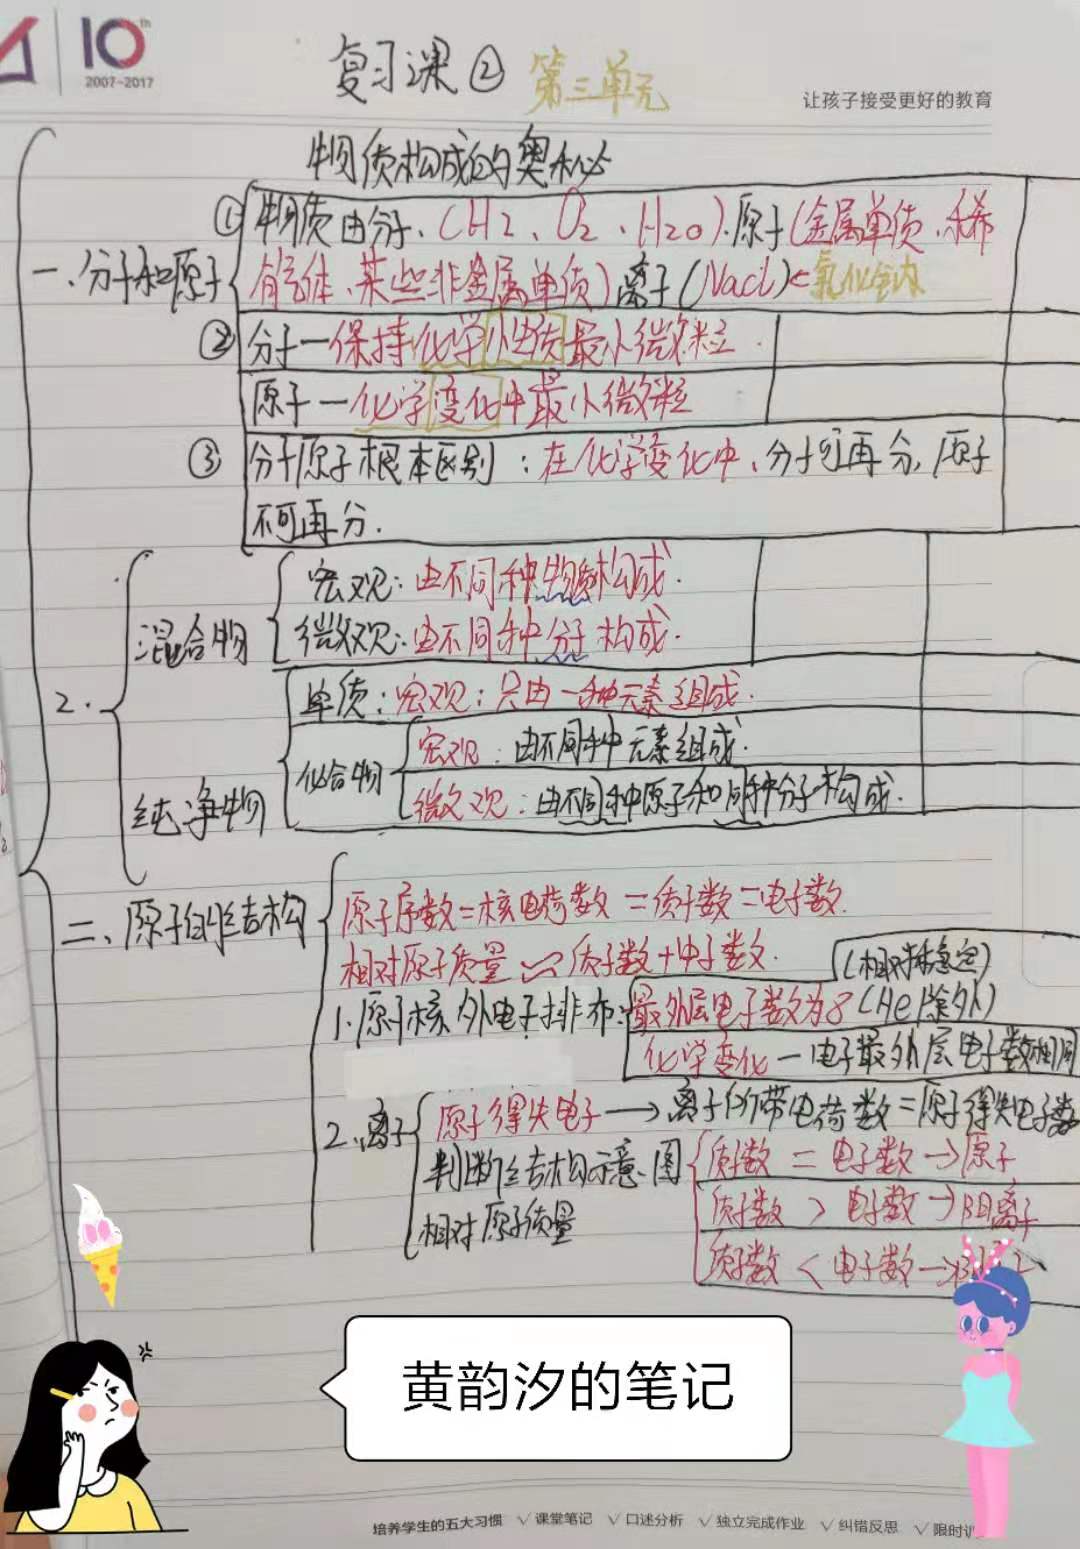 10th
2007-2017
复习课② 第三单元
让孩子接受更好的教育
物质构成的奥秘
一、分子和原子
① 物质由分子、(H2、O2、H2O).原子(金属单质、稀
有气体、某些非金属单质)离子(Nacl)←氯化钠
② 分子—保持化学性质最小微粒.
原子—化学变化中最小微粒
③ 分子原子根本区别:在化学变化中,分子可再分,原子
不可再分.
2.
混合物
宏观:由不同种物质构成.
微观:由不同种分子构成.
纯净物
单质:宏观:只由一种元素组成.
化合物
宏观:由不同种元素组成.
微观:由不同种原子和同种分子构成.
二、原子的结构
原子序数=核电荷数=质子数=电子数.
相对原子质量≈质子数+中子数.
(相对稳定)
1.原子核外电子排布:最外层电子数为8(He除外)
化学变化—电子最外层电子数相同
2.离子
原子得失电子→离子所带电荷数=原子得失电子数
判断结构示意图
质子数=电子数→原子
质子数>电子数→阳离子
质子数<电子数→
相对原子质量
黄韵汐的笔记
培养学生的五大习惯 √课堂笔记 √口述分析 √独立完成作业 √纠错反思 √限时训